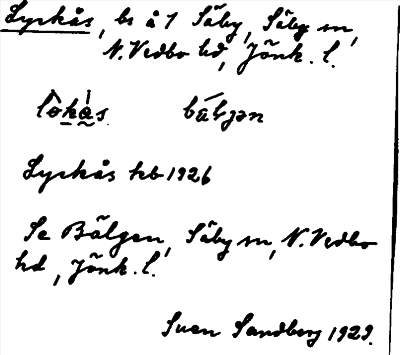 Lyckås, bs å 1 Säby, Säby sn,
N. Vedbo hd, Jönk. l.
Lyckås hb 1926
Se Bälgen, Säby sn, N. Vedbo
hd, Jönk. l.
Sven Sandberg 1929.